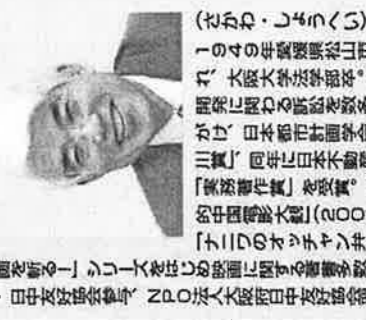 （さかわ・しょうへい）
1949年愛媛県松山市
れ、大阪大学法学部卒。
開発に関わる訴訟を数多
がけ、日本都市計画学会
川賞」、同年に日本不動
「実務著作賞」を受賞。
的中国電影大観』（200
『ナニワのオッチャン弁
画を斬る！』シリーズをはじめ映画に関する著書多数
日中友好協会参与、NPO法人大阪府日中友好協会